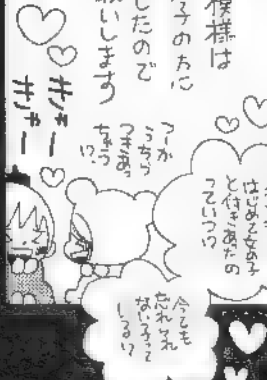 僕様は
子のために
したので
願いします
きゃー
きゃー
つーか
うちら
つきあっ
ちゃう
!?
はじめて女の子
と付きあたの
っていつ!?
今でも
忘れられ
ない子って
いる!?